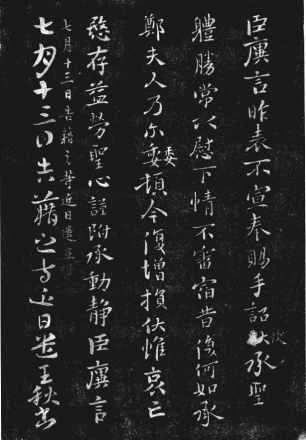 臣廙言昨表不宣奉賜手詔伏承聖
體勝常以慰下情不審宿昔復何如承
鄭夫人乃尔委頓今復增損伏惟哀亡
愍存益勞聖心謹附承動靜臣廙言
七月十三日告藉之等近日遣王
七月十三日告藉之等近日遣王秋書